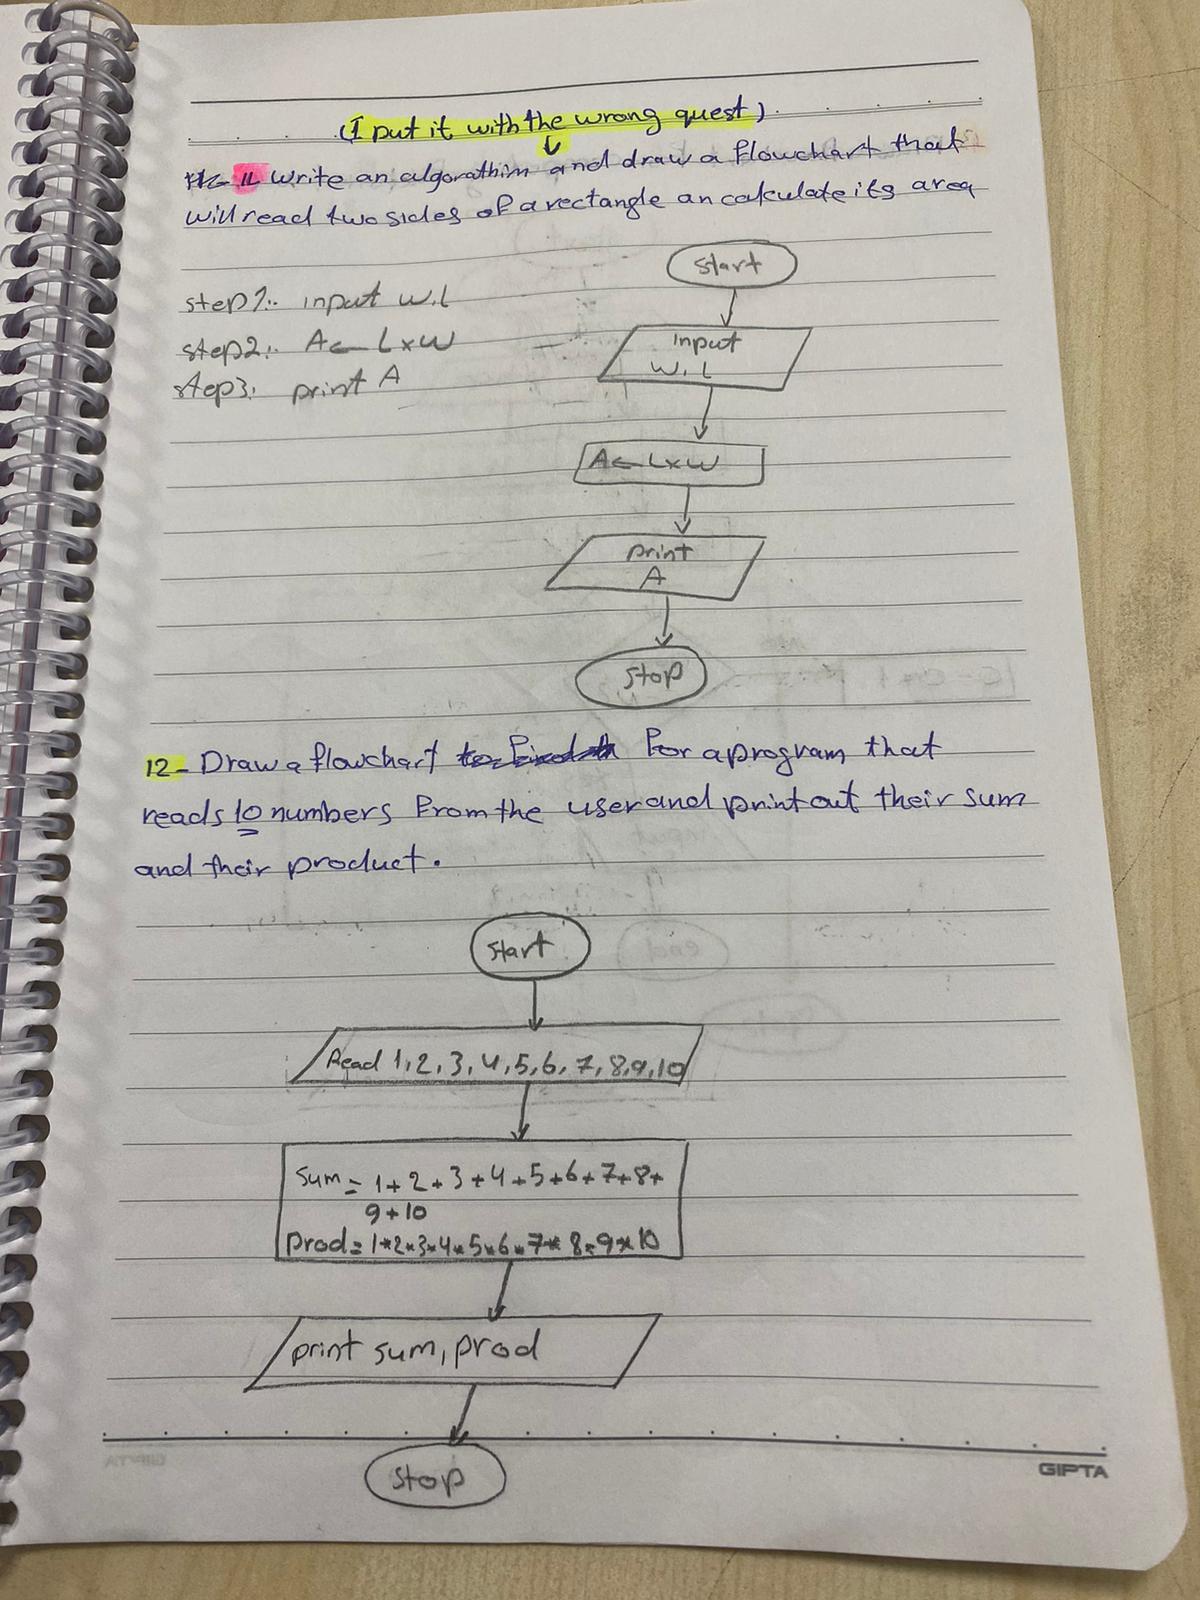 (I put it with the wrong quest)
11 Write an algorathim and draw a flowchart that
will read two sides of a rectangle an calculate its area
step1:. input W,L
step2:. A← L×W
step3: print A
Start
input
W,L
A← L×W
print
A
Stop
12- Draw a flowchart for a program that
reads 10 numbers from the user and print out their sum
and their product.
Start
Read 1,2,3,4,5,6,7,8,9,10
Sum = 1+2+3+4+5+6+7+8+
9+10
Prod = 1*2*3*4*5*6*7*8*9*10
print sum, prod
Stop
GIPTA